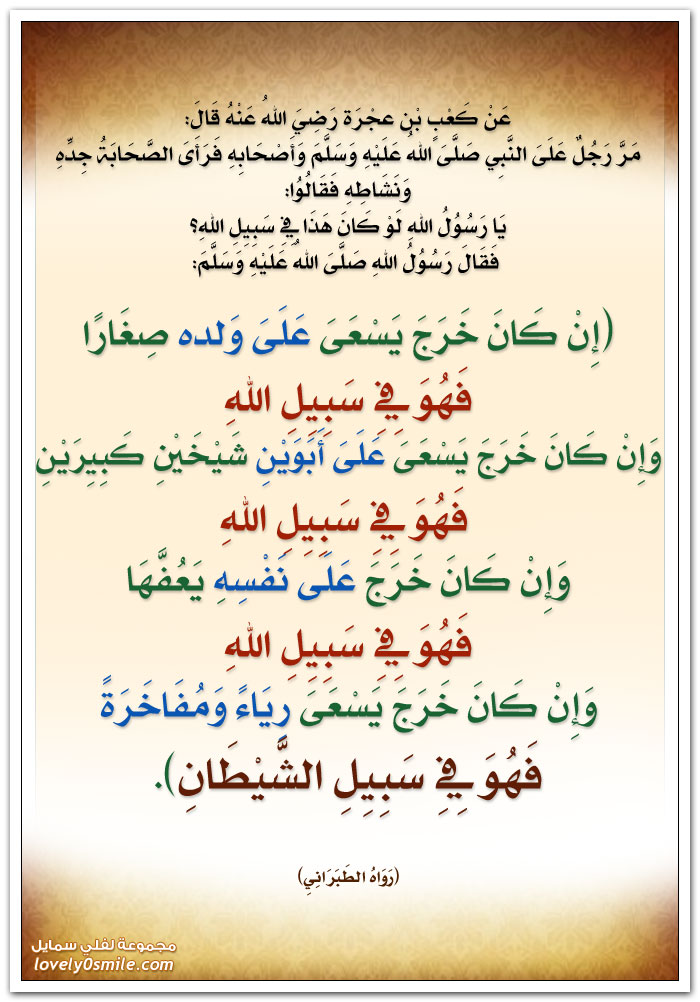 عَنْ كَعْبٍ بْنِ عجْرَة رَضِيَ اللهُ عَنْهُ قَالَ:
مَرَّ رَجُلٌ عَلَىَ النَّبِي صَلَّىَ اللهُ عَلَيْهِ وَسَلَّمَ وَأَصْحَابِهِ فَرَأَىَ الصَّحَابَةُ جِدِّهِ
وَنَشَاطِهِ فَقَالُوُا:
يَا رَسُوُلُ اللهِ لَوْ كَانَ هَذَا فِيِ سَبِيِلِ اللهِ؟
فَقَالَ رَسُوُلُ اللهِ صَلَّىَ اللهُ عَلَيْهِ وَسَلَّمَ:
(إِنْ كَانَ خَرَجَ يَسْعَىَ عَلَىَ وَلده صِغَارًا
فَهُوَ فِيِ سَبِيِلِ اللهِ
وَإِنْ كَانَ خَرَجَ يَسْعَىَ عَلَىَ أَبَوَيْنِ شَيْخَيْنِ كَبِيِرَيْنِ
فَهُوَ فِيِ سَبِيِلِ اللهِ
وَإِنْ كَانَ خَرَجَ عَلَىَ نَفْسِهِ يَعُفَّهَا
فَهُوَ فِيِ سَبِيِلِ اللهِ
وَإِنْ كَانَ خَرَجَ يَسْعَىَ رِيَاءً وَمُفَاخَرَةً
فَهُوَ فِيِ سَبِيِلِ الشَّيْطَانِ).
(رَوَاهُ الطَبَرَانِي)
مجموعة لفلي سمايل
lovely0smile.com